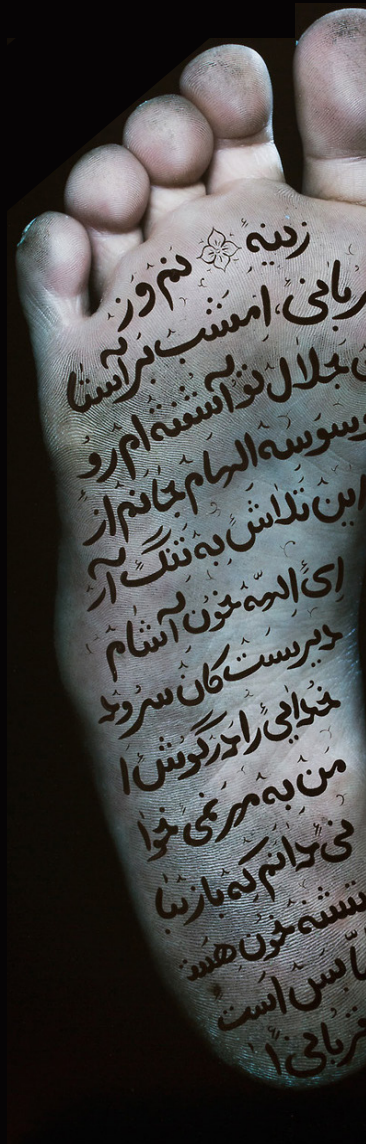 زینه نم و ز
ربانی، امشب بر آستا
جلال تو آشفته ام رو
وسوسه الهام جانم از
این تلاش به تنگ آ
ای الهه خون آشام
دیریست کان سرود
خدایی را در گوش ا
من به مهر نمی خوا
نی دانم که باز
تشنه خون هست
ا بس است
قربانی ا